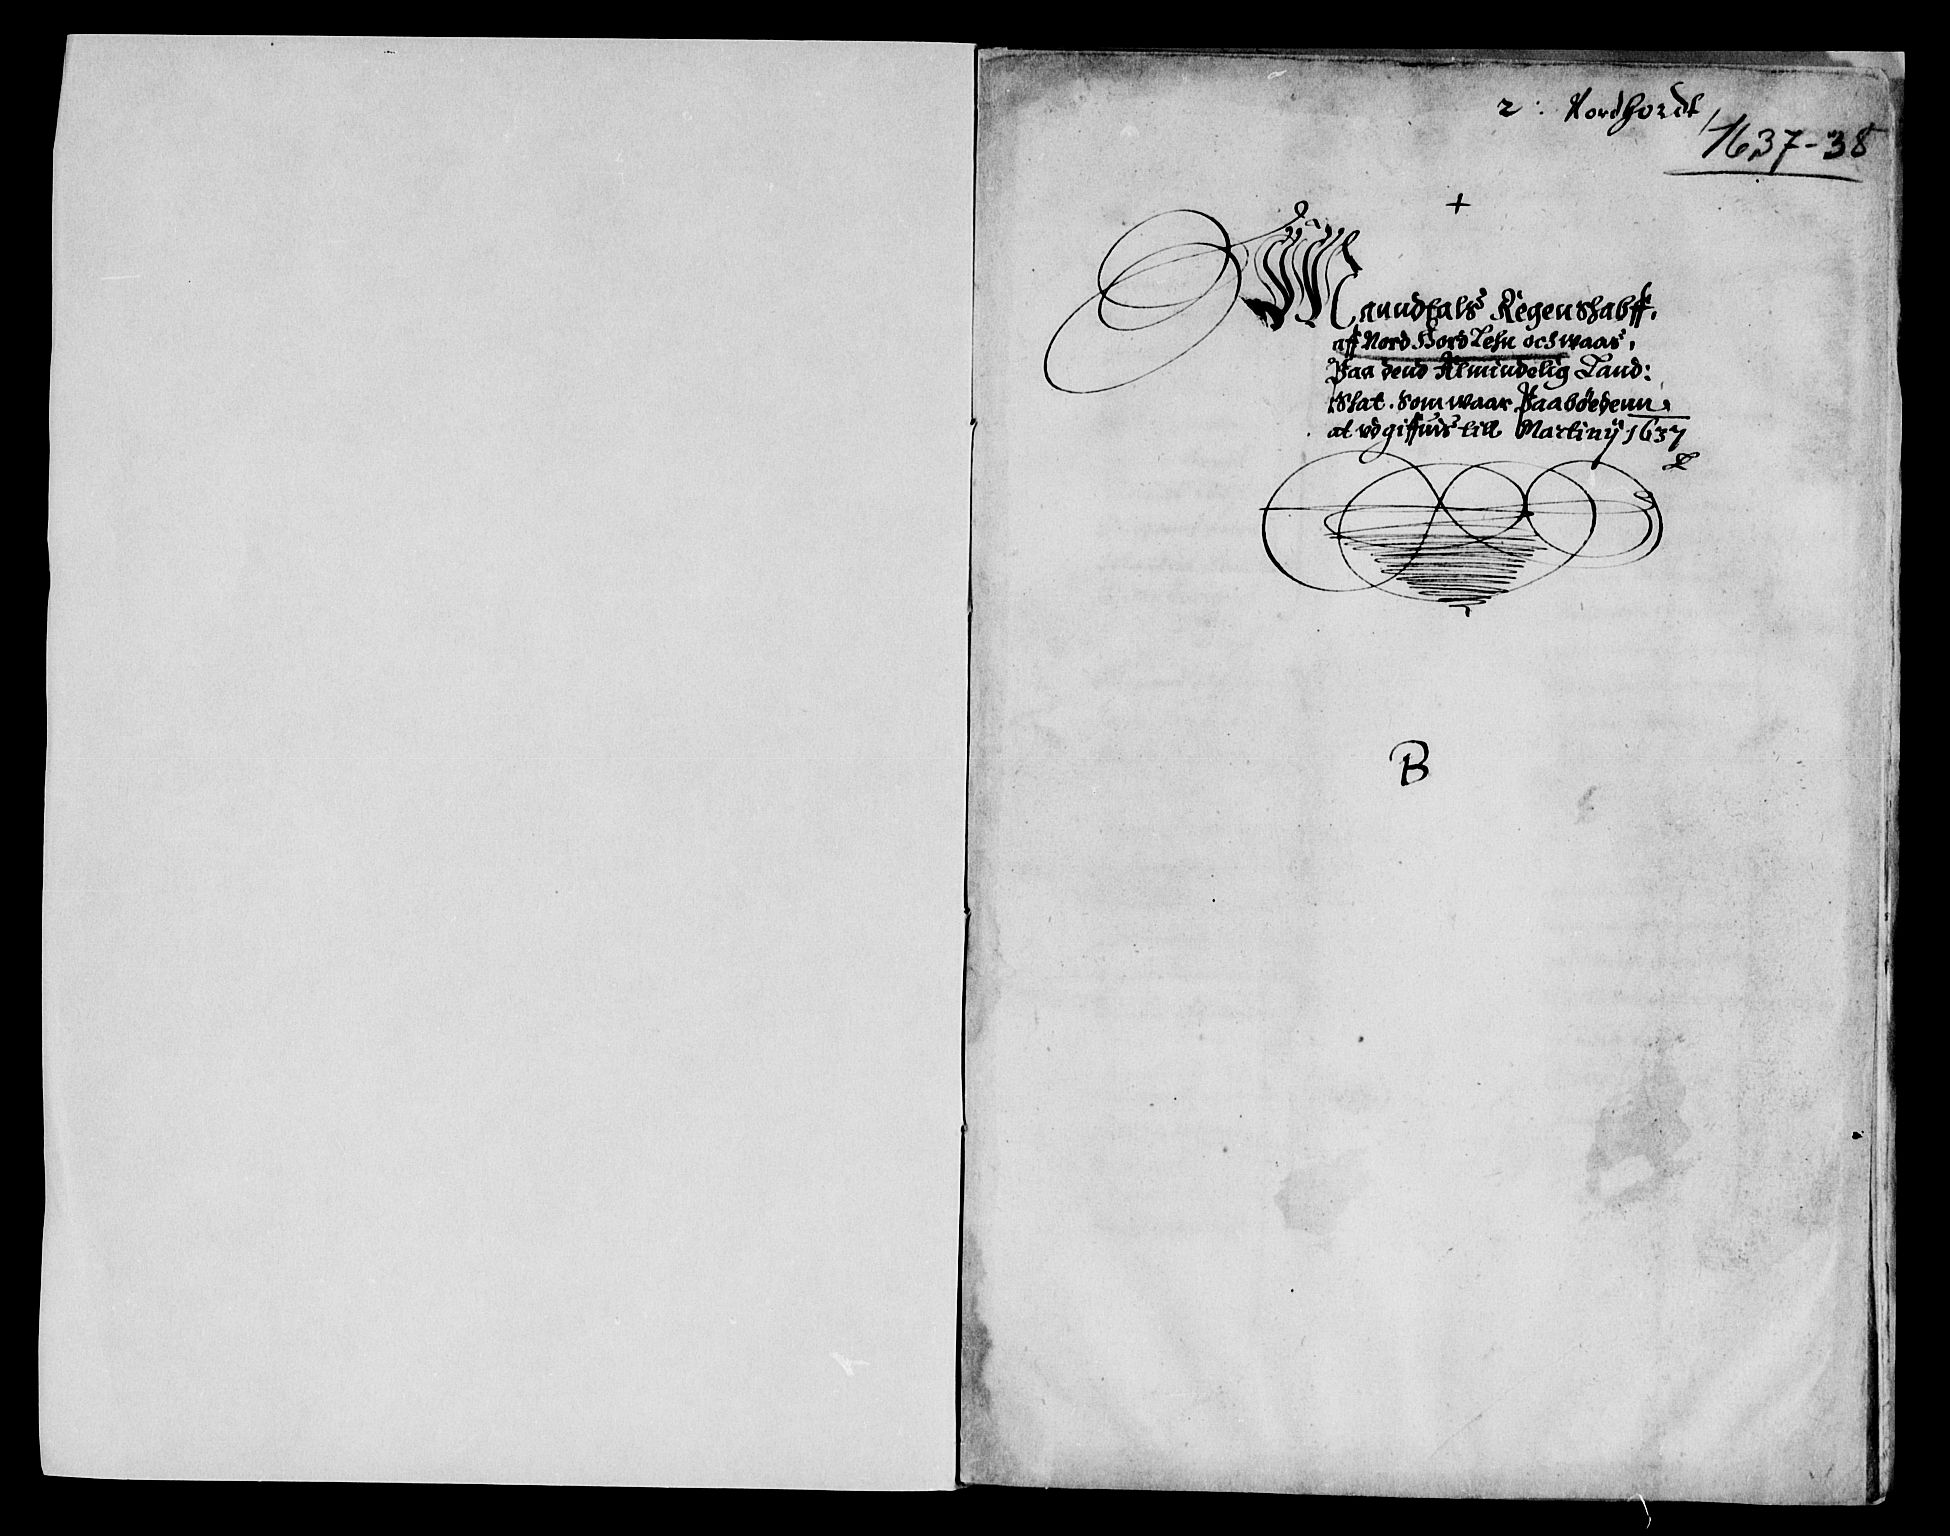 2: Nordhordt
1637-38
+
Manndtals Regenskabff.
aff Nord Hord Lehn och waas,
Paa dend Almindelig Land:
Skat. Som waar Paabøedenn
at vdgiffuis till Martinÿ 1637
B